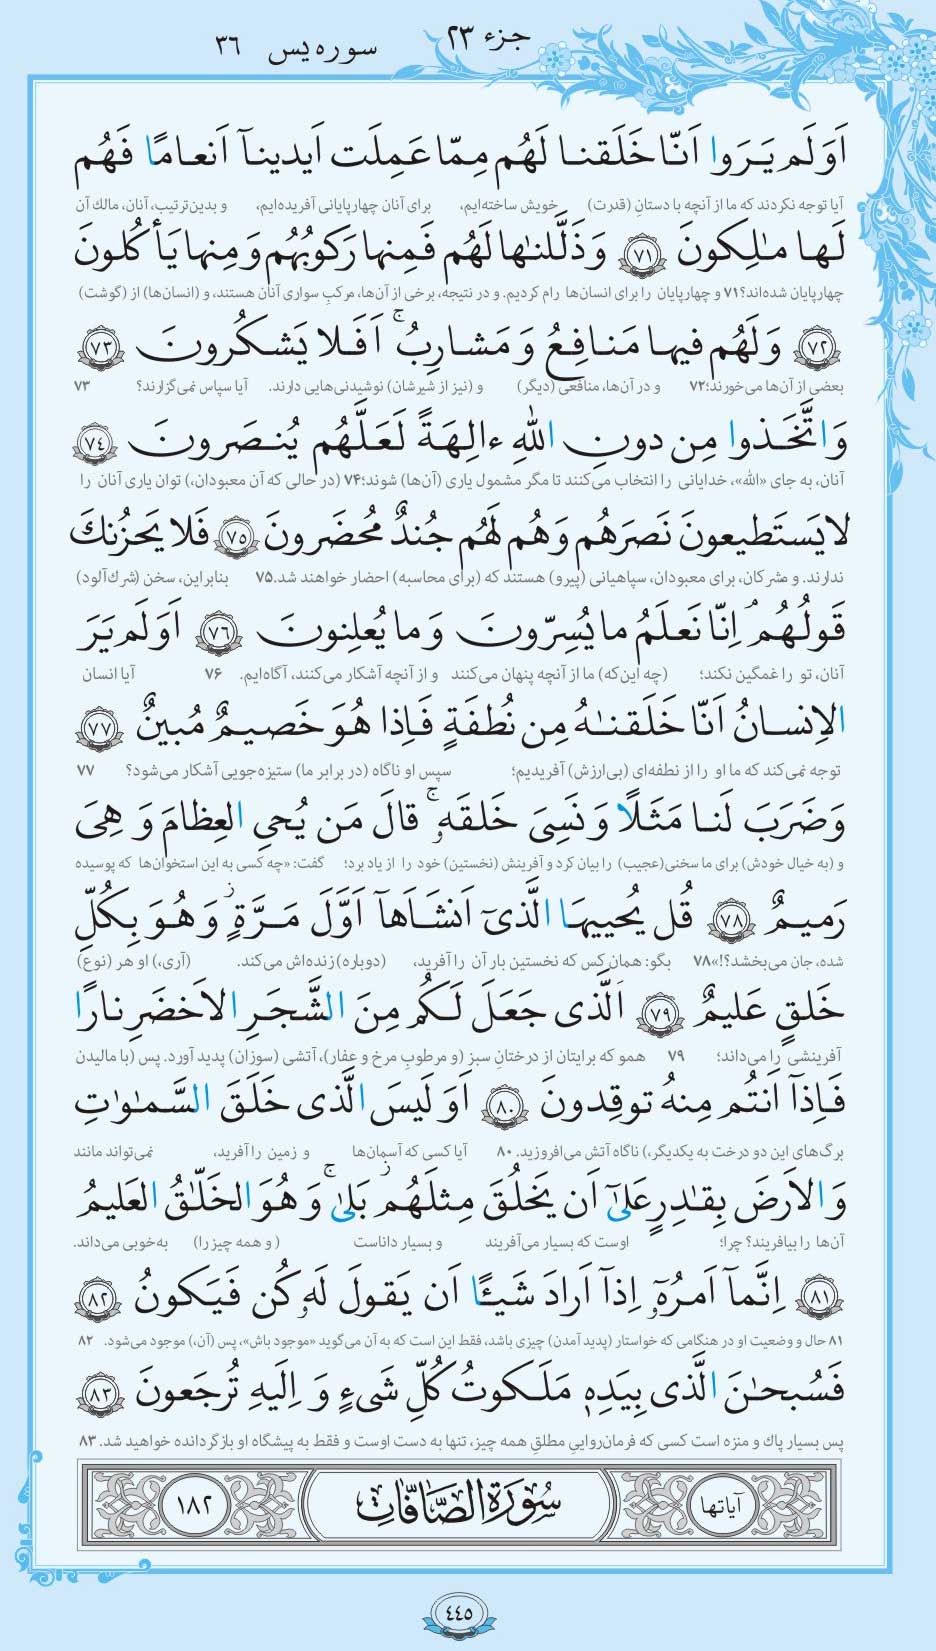 جزء ٢٣
سوره یس ٣٦
اَوَلَم یَـرَوا اَنّا خَلَقنـا لَهُم مِمّا عَمِلَت اَیدینـآ اَنعـامًا فَهُم
آیا توجه نکردند که ما از آنچه با دستانِ (قدرت) خویش ساخته‌ایم، برای آنان چهارپایانی آفریده‌ایم، و بدین‌ترتیب، آنان، مالك آن
لَهـا مـٰلِکونَ ﴿٧١﴾ وَ ذَلَّلنـٰها لَهُم فَمِنهـا رَکوبُهُم وَ مِنهـا یَأکُلونَ
چهارپایان شده‌اند؟۷۱ و چهارپایان را برای انسان‌ها رام کردیم. و در نتیجه، برخی از آن‌ها، مرکبِ سواری آنان هستند، و (انسان‌ها) از (گوشت)
﴿٧٢﴾ وَ لَهُم فیهـا مَنـافِـعُ وَ مَشـارِبُ ۚ اَفَـلا یَشـکُرونَ ﴿٧٣﴾
بعضی از آن‌ها می‌خورند؛۷۲ و در آن‌ها، منافعی (دیگر) و (نیز از شیرشان) نوشیدنی‌هایی دارند. آیا سپاس نمی‌گزارند؟ ۷۳
وَ اتَّخَذوا مِن دونِ اللّٰهِ ءالِهَةً لَعَلَّهُم یُنصَرونَ ﴿٧٤﴾
آنان، به جای «الله»، خدایانی را انتخاب می‌کنند تا مگر مشمول یاری (آن‌ها) شوند؛۷۴ (در حالی که آن معبودان،) توان یاری آنان را
لا یَستَطیعونَ نَصرَهُم وَ هُم لَهُم جُندٌ مُحضَرونَ ﴿٧٥﴾ فَلا یَحزُنكَ
ندارند. و مشرکان، برای معبودان، سپاهیانی (پیرو) هستند که (برای محاسبه) احضار خواهند شد.۷۵ بنابراین، سخن (شرك‌آلود)
قَولُهُم ۘ اِنّا نَعلَمُ ما یُسِرّونَ وَ ما یُعلِنونَ ﴿٧٦﴾ اَوَلَم یَرَ
آنان، تو را غمگین نکند؛ (چه این‌که) ما از آنچه پنهان می‌کنند و از آنچه آشکار می‌کنند، آگاه‌ایم. ۷۶ آیا انسان
الاِنسـانُ اَنّا خَلَقنـٰهُ مِن نُطفَةٍ فَاِذا هُوَ خَصیـمٌ مُبینٌ ﴿٧٧﴾
توجه نمی‌کند که ما او را از نطفه‌ای (بی‌ارزش) آفریدیم؛ سپس او ناگاه (در برابر ما) ستیزه‌جویی آشکار می‌شود؟ ۷۷
وَ ضَرَبَ لَنـا مَثَـلًا وَ نَسِیَ خَلقَهٗ ۚ قالَ مَن یُحیِ العِظامَ وَ هِیَ
و (به خیال خودش) برای ما سخنی (عجیب) را بیان کرد و آفرینش (نخستین) خود را از یاد برد؛ گفت: «چه کسی به این استخوان‌ها که پوسیده
رَمیـمٌ ﴿٧٨﴾ قُل یُحییهَـا الَّذیٓ اَنشَـاَهآ اَوَّلَ مَـرَّةٍ ۖ وَ هُوَ بِکُلِّ
شده، جان می‌بخشد؟!»۷۸ بگو: همان کس که نخستین بار آن را آفرید، (دوباره) زنده‌اش می‌کند. (آری،) او هر (نوع)
خَلقٍ عَلیمٌ ﴿٧٩﴾ اَلَّذی جَعَلَ لَـکُم مِنَ الشَّجَـرِ الاَخضَرِ نـارًا
آفرینشی را می‌داند؛ ۷۹ همو که برایتان از درختانِ سبزِ (و مرطوبِ مرخ و عفار)، آتشی (سوزان) پدید آورد. پس (با مالیدن
فَاِذآ اَنتُم مِنهُ توقِدونَ ﴿٨٠﴾ اَوَ لَیسَ الَّذی خَلَقَ السَّمـٰوٰتِ
برگ‌های این دو درخت به یکدیگر،) ناگاه آتش می‌افروزید. ۸۰ آیا کسی که آسمان‌ها و زمین را آفرید، نمی‌تواند مانند
وَ الاَرضَ بِقـٰدِرٍ عَلیٰٓ اَن یَخلُقَ مِثلَهُم ۚ بَلیٰ وَ هُوَ الخَلّـٰقُ العَلیمُ
آن‌ها را بیافریند؟ چرا؛ اوست که بسیار می‌آفریند و بسیار داناست (و همه چیز را) به‌خوبی می‌داند.
﴿٨١﴾ اِنَّمـآ اَمـرُهٗٓ اِذآ اَرادَ شَیـئًا اَن یَقـولَ لَهٗ کُن فَیَکونُ ﴿٨٢﴾
۸۱ حال و وضعیت او در هنگامی که خواستار (پدید آمدن) چیزی باشد، فقط این است که به آن می‌گوید «موجود باش»، پس (آن،) موجود می‌شود. ۸۲
فَسُبحـٰنَ الَّذی بِیَدِهٖ مَلَـکوتُ کُلِّ شَیءٍ وَ اِلَیهِ تُرجَعونَ ﴿٨٣﴾
پس بسیار پاك و منزه است کسی که فرمان‌رواییِ مطلقِ همه چیز، تنها به دست اوست و فقط به پیشگاه او بازگردانده خواهید شد. ۸۳
آیاتها سُورَةُ الصّافّاتِ ١٨٢
٤٤٥